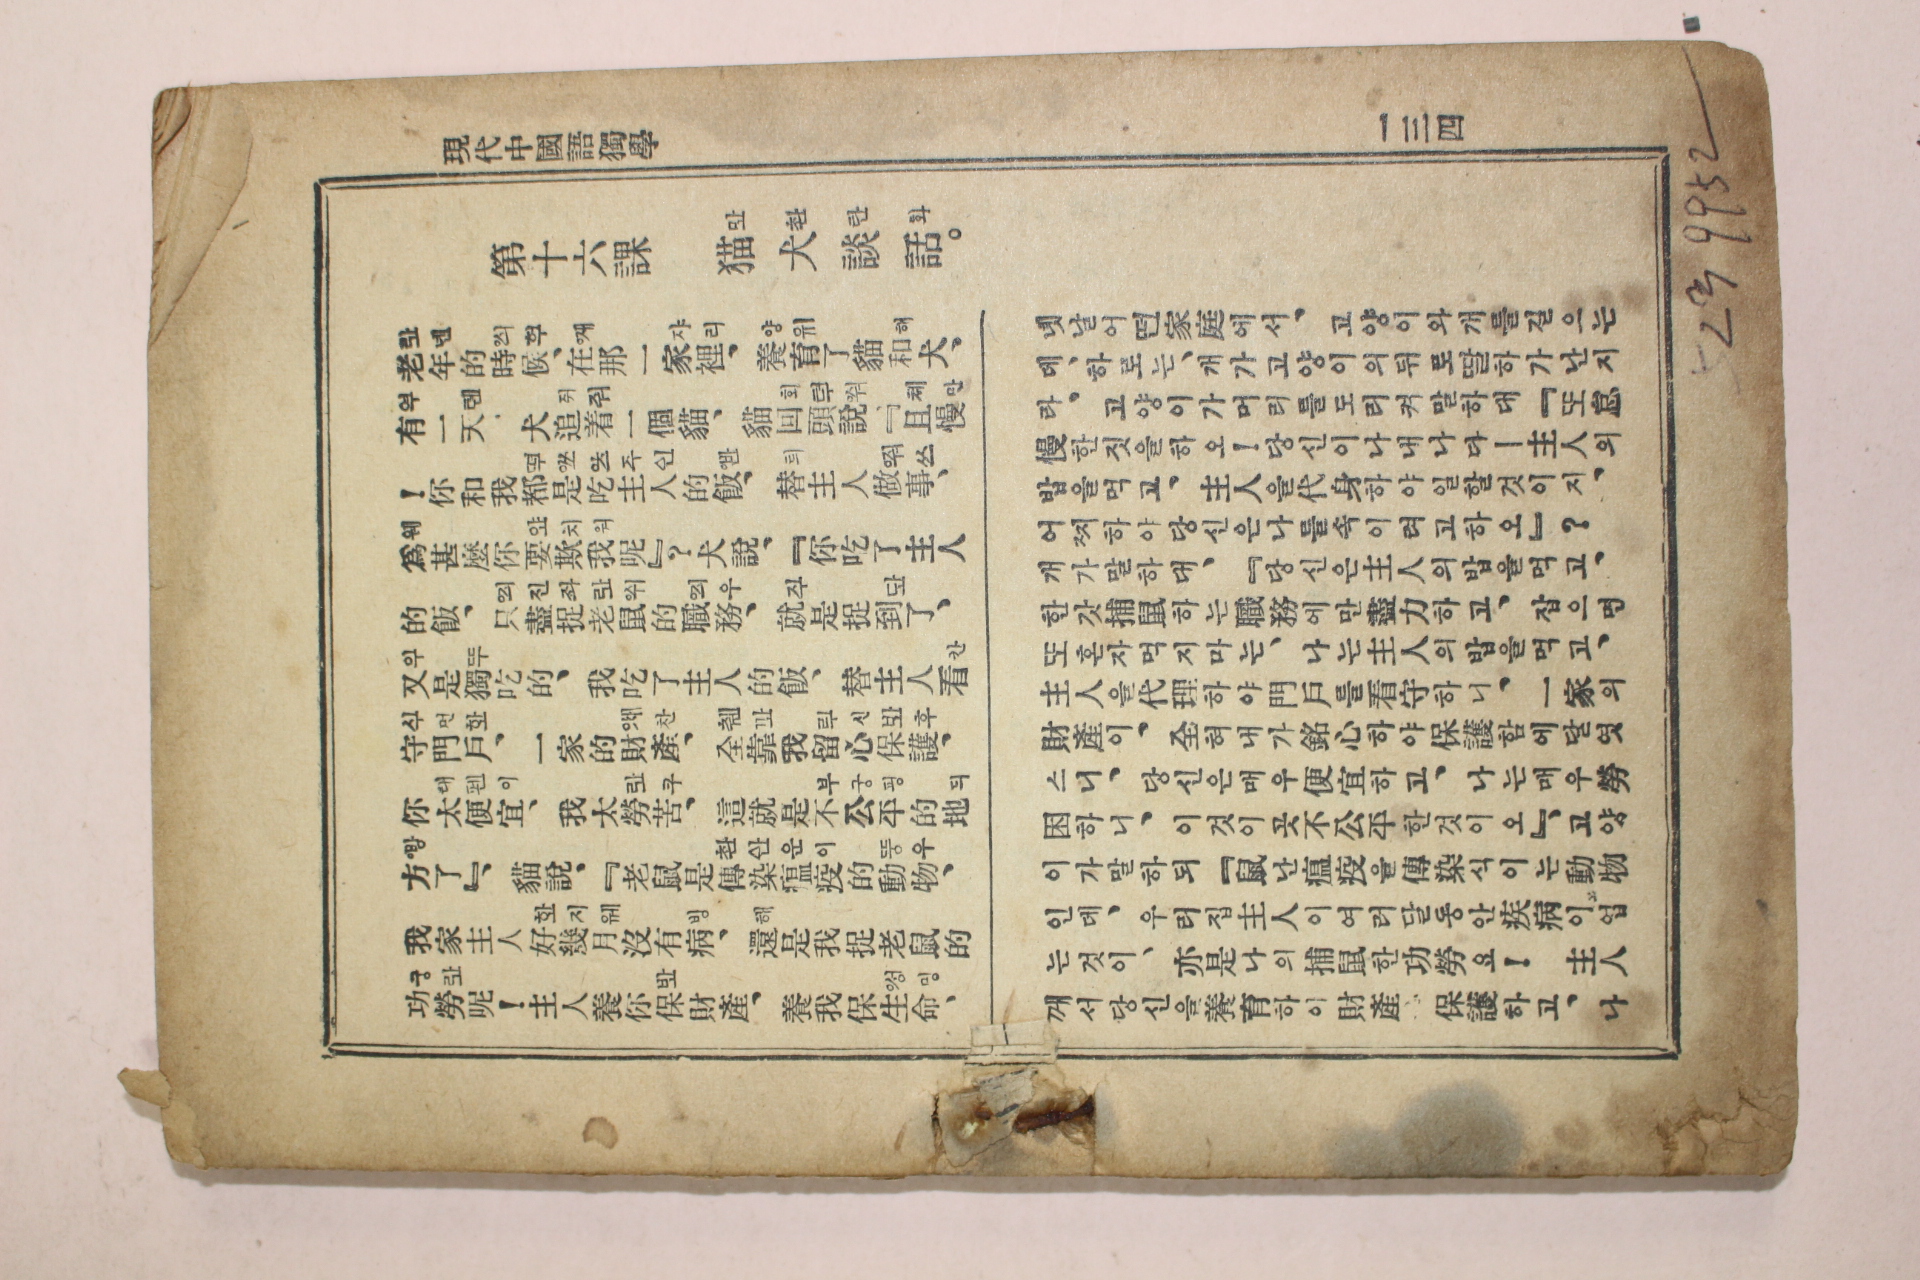 現代中國語獨學
一三四
第十六課 猫犬談話。
老年的時候、在那一家裡、養育了貓和犬、
有一天、犬追着一個貓、貓回頭說、『且慢
！你和我都是吃主人的飯、替主人做事、
爲甚麼你要欺我呢』？犬說、『你吃了主人
的飯、只盡捉老鼠的職務、就是捉到了、
又是獨吃的、我吃了主人的飯、替主人看
守門戶、一家的財產、全靠我留心保護、
你太便宜、我太勞苦、這就是不公平的地
方了』、貓說、『老鼠是傳染瘟疫的動物、
我家主人好幾月沒有病、還是我捉老鼠的
功勞呢！主人養你保財產、養我保生命、
녯날어떤家庭에서、고양이와개를길으는
데、하로는、개가고양이의뒤로딸하가난지
라、고양이가머리를도리켜말하대『또怠
慢한짓을하오！당신이나내나다ー主人의
밥을먹고、主人을代身하야일할것이지、
어찌하야당신은나를속이려고하오』？
개가말하대、『당신은主人의밥을먹고、
한갓捕鼠하는職務에만盡力하고、잡으면
또혼자먹지마는、나는主人의밥을먹고、
主人을代理하야門戶를看守하니、一家의
財產이、全혀내가銘心하야保護함에달엿
스니、당신은매우便宜하고、나는매우勞
困하니、이것이곳不公平한것이오』、고양
이가말하되『鼠난瘟疫을傳染식이는動物
인데、우리집主人이여러달동안疾病이업
는것이、亦是나의捕鼠한功勞요！主人
께서당신을養育하이財產、保護하고、나
9952